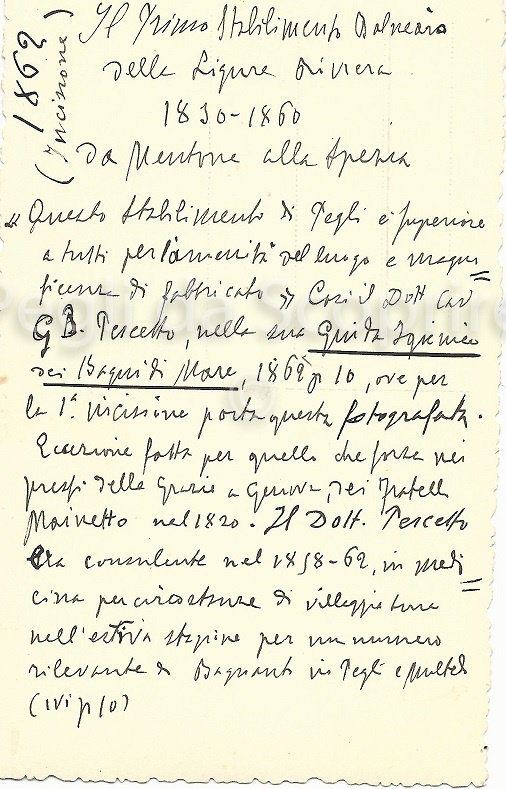 1862
(Incisione)
Il Primo Stabilimento Balneario
della Ligure Riviera
1830-1860
da Mentone alla Spezia
"Questo Stabilimento di Pegli è superiore
a tutti per l'amenità del luogo e magni=
ficenza di fabbricato" Così il Dott Cav
G B. Pescetto, nella sua Guida Igienica
dei Bagni di Mare, 1862 p 10, ove per
la 1ª incisione porta questa fotografata.
Eccezione fatta per quello che sorse nei
pressi della Grazie a Genova, dei fratelli
Mainetto nel 1820. Il Dott. Pescetto
era consulente nel 1858-62, in medi=
cina per circostanze di villeggiatura
nell'estiva stagione per un numero
rilevante di Bagnanti in Pegli e Multedo
(ivi p 10)
Pegli da Scoprire
©